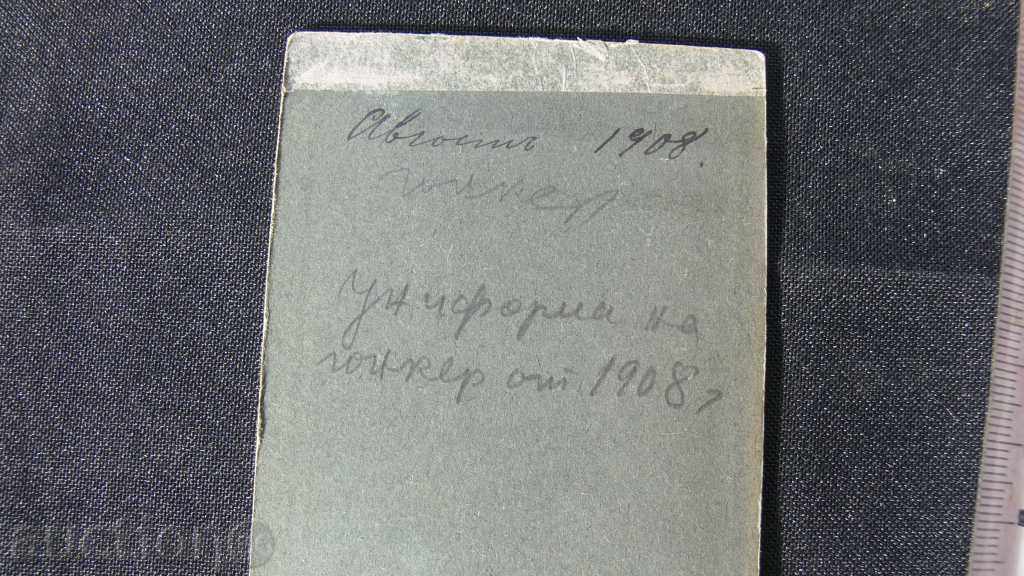 Августъ 1908.
юнкер
Униформа на
юнкер от 1908,
auction.f